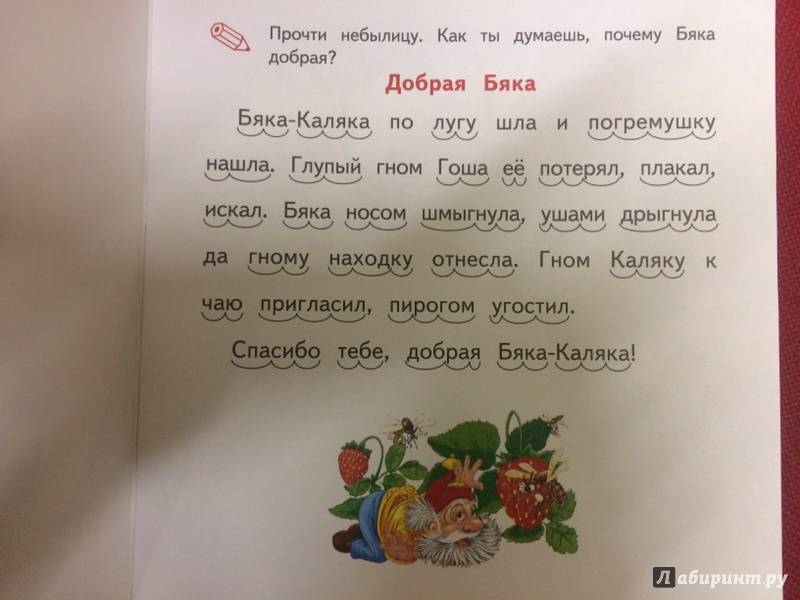 Прочти небылицу. Как ты думаешь, почему Бяка
добрая?
Добрая Бяка
Бяка-Каляка по лугу шла и погремушку
нашла. Глупый гном Гоша её потерял, плакал,
искал. Бяка носом шмыгнула, ушами дрыгнула
да гному находку отнесла. Гном Каляку к
чаю пригласил, пирогом угостил.
Спасибо тебе, добрая Бяка-Каляка!
Лабиринт.ру